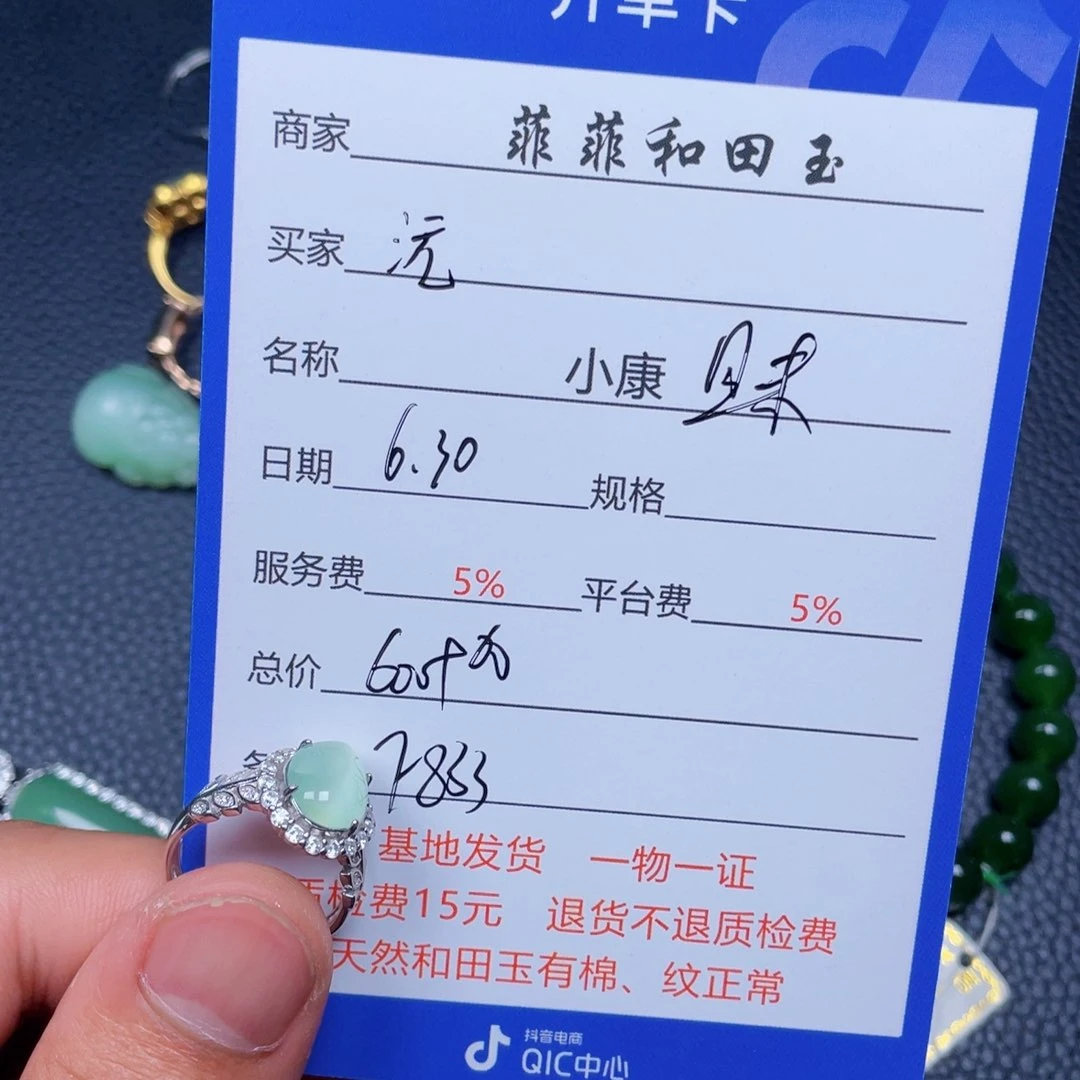 开单卡
商家 菲菲和田玉
买家 沅
名称 小康
日期 6.30 规格
服务费 5% 平台费 5%
总价
7853
基地发货 一物一证
质检费15元 退货不退质检费
天然和田玉有棉、纹正常
抖音电商
QIC中心